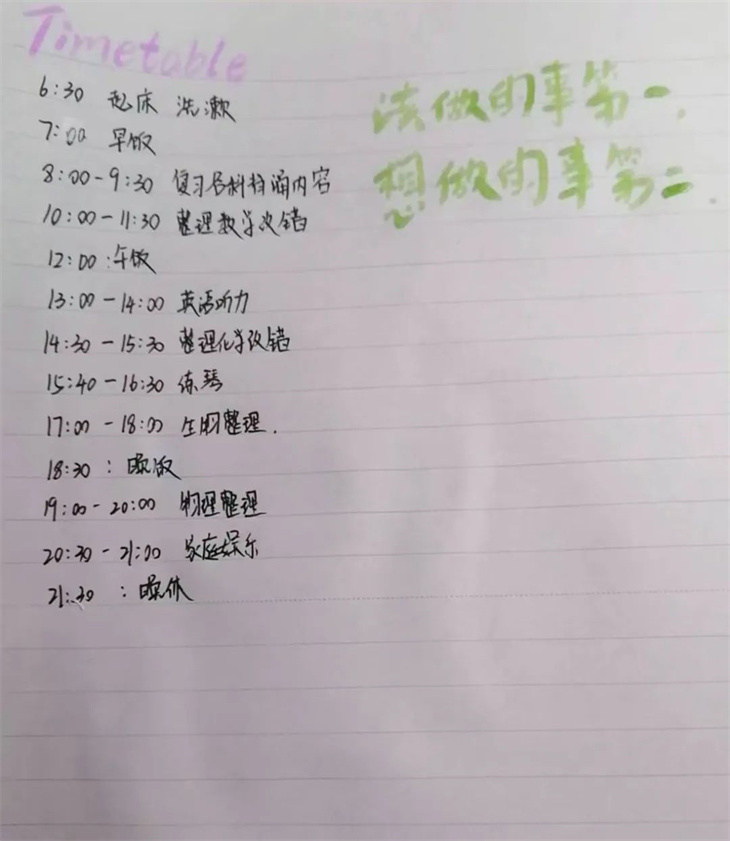 Timetable
6:30 起床 洗漱
7:00 早饭
8:00-9:30 复习各科背诵内容
10:00-11:30 整理数学改错
12:00:午饭
13:00-14:00 英语听力
14:30-15:30 整理化学改错
15:40-16:30 练琴
17:00-18:00 生物整理.
18:30:晚饭
19:00-20:00 物理整理
20:30-21:00 家庭娱乐
21:30:晚休
该做的事第一,
想做的事第二.